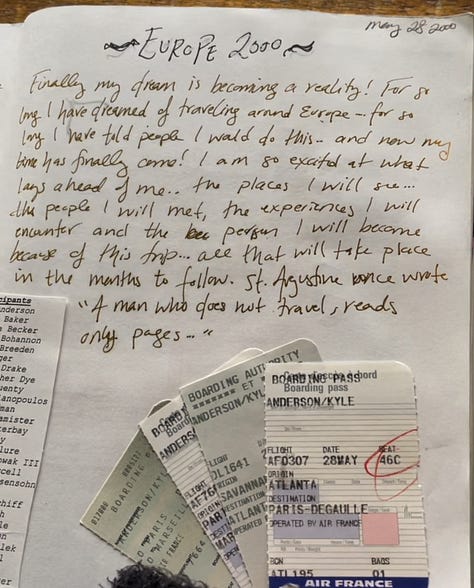 May 28 2000
EUROPE 2000
Finally my dream is becoming a reality! For so
long I have dreamed of traveling around Europe... for so
long I have told people I would do this... and now my
time has finally come! I am so excited at what
lays ahead of me.. the places I will see...
the people I will met, the experiences I will
encounter and the person I will become
because of this trip... all that will take place
in the months to follow. St. Augustine once wrote
"A man who does not travel, reads
only pages..."
cipants
nderson
Baker
Becker
Bohannon
Breeden
ger
Drake
her Dye
uenty
lanopoulos
man
amister
terbay
y
lure
owak III
rcell
sensohn
chiff
h
un
lek
l
BOARDING
PARIS
MARSEILLE
BOARD
ANDERS
FLIGHT
AF76
ORIGIN
PAR
DESTINATION
MAR
BOARDING AUTHORITY
******* ET *
ANDERSON/KYLE
FLIGHT
DL1641
ORIGIN
SAVANNA
DESTINATION
ATLANT
BOARDING PASS
Carte d'accès à bord
Boarding pass
ANDERSON/KYLE
FLIGHT DATE SEAT
AF0307 28MAY 46C
ORIGIN
ATLANTA
DESTINATION
PARIS-DEGAULLE
OPERATED BY AIR FRANCE
BCN BAGS
ATL195 01
AIR FRANCE